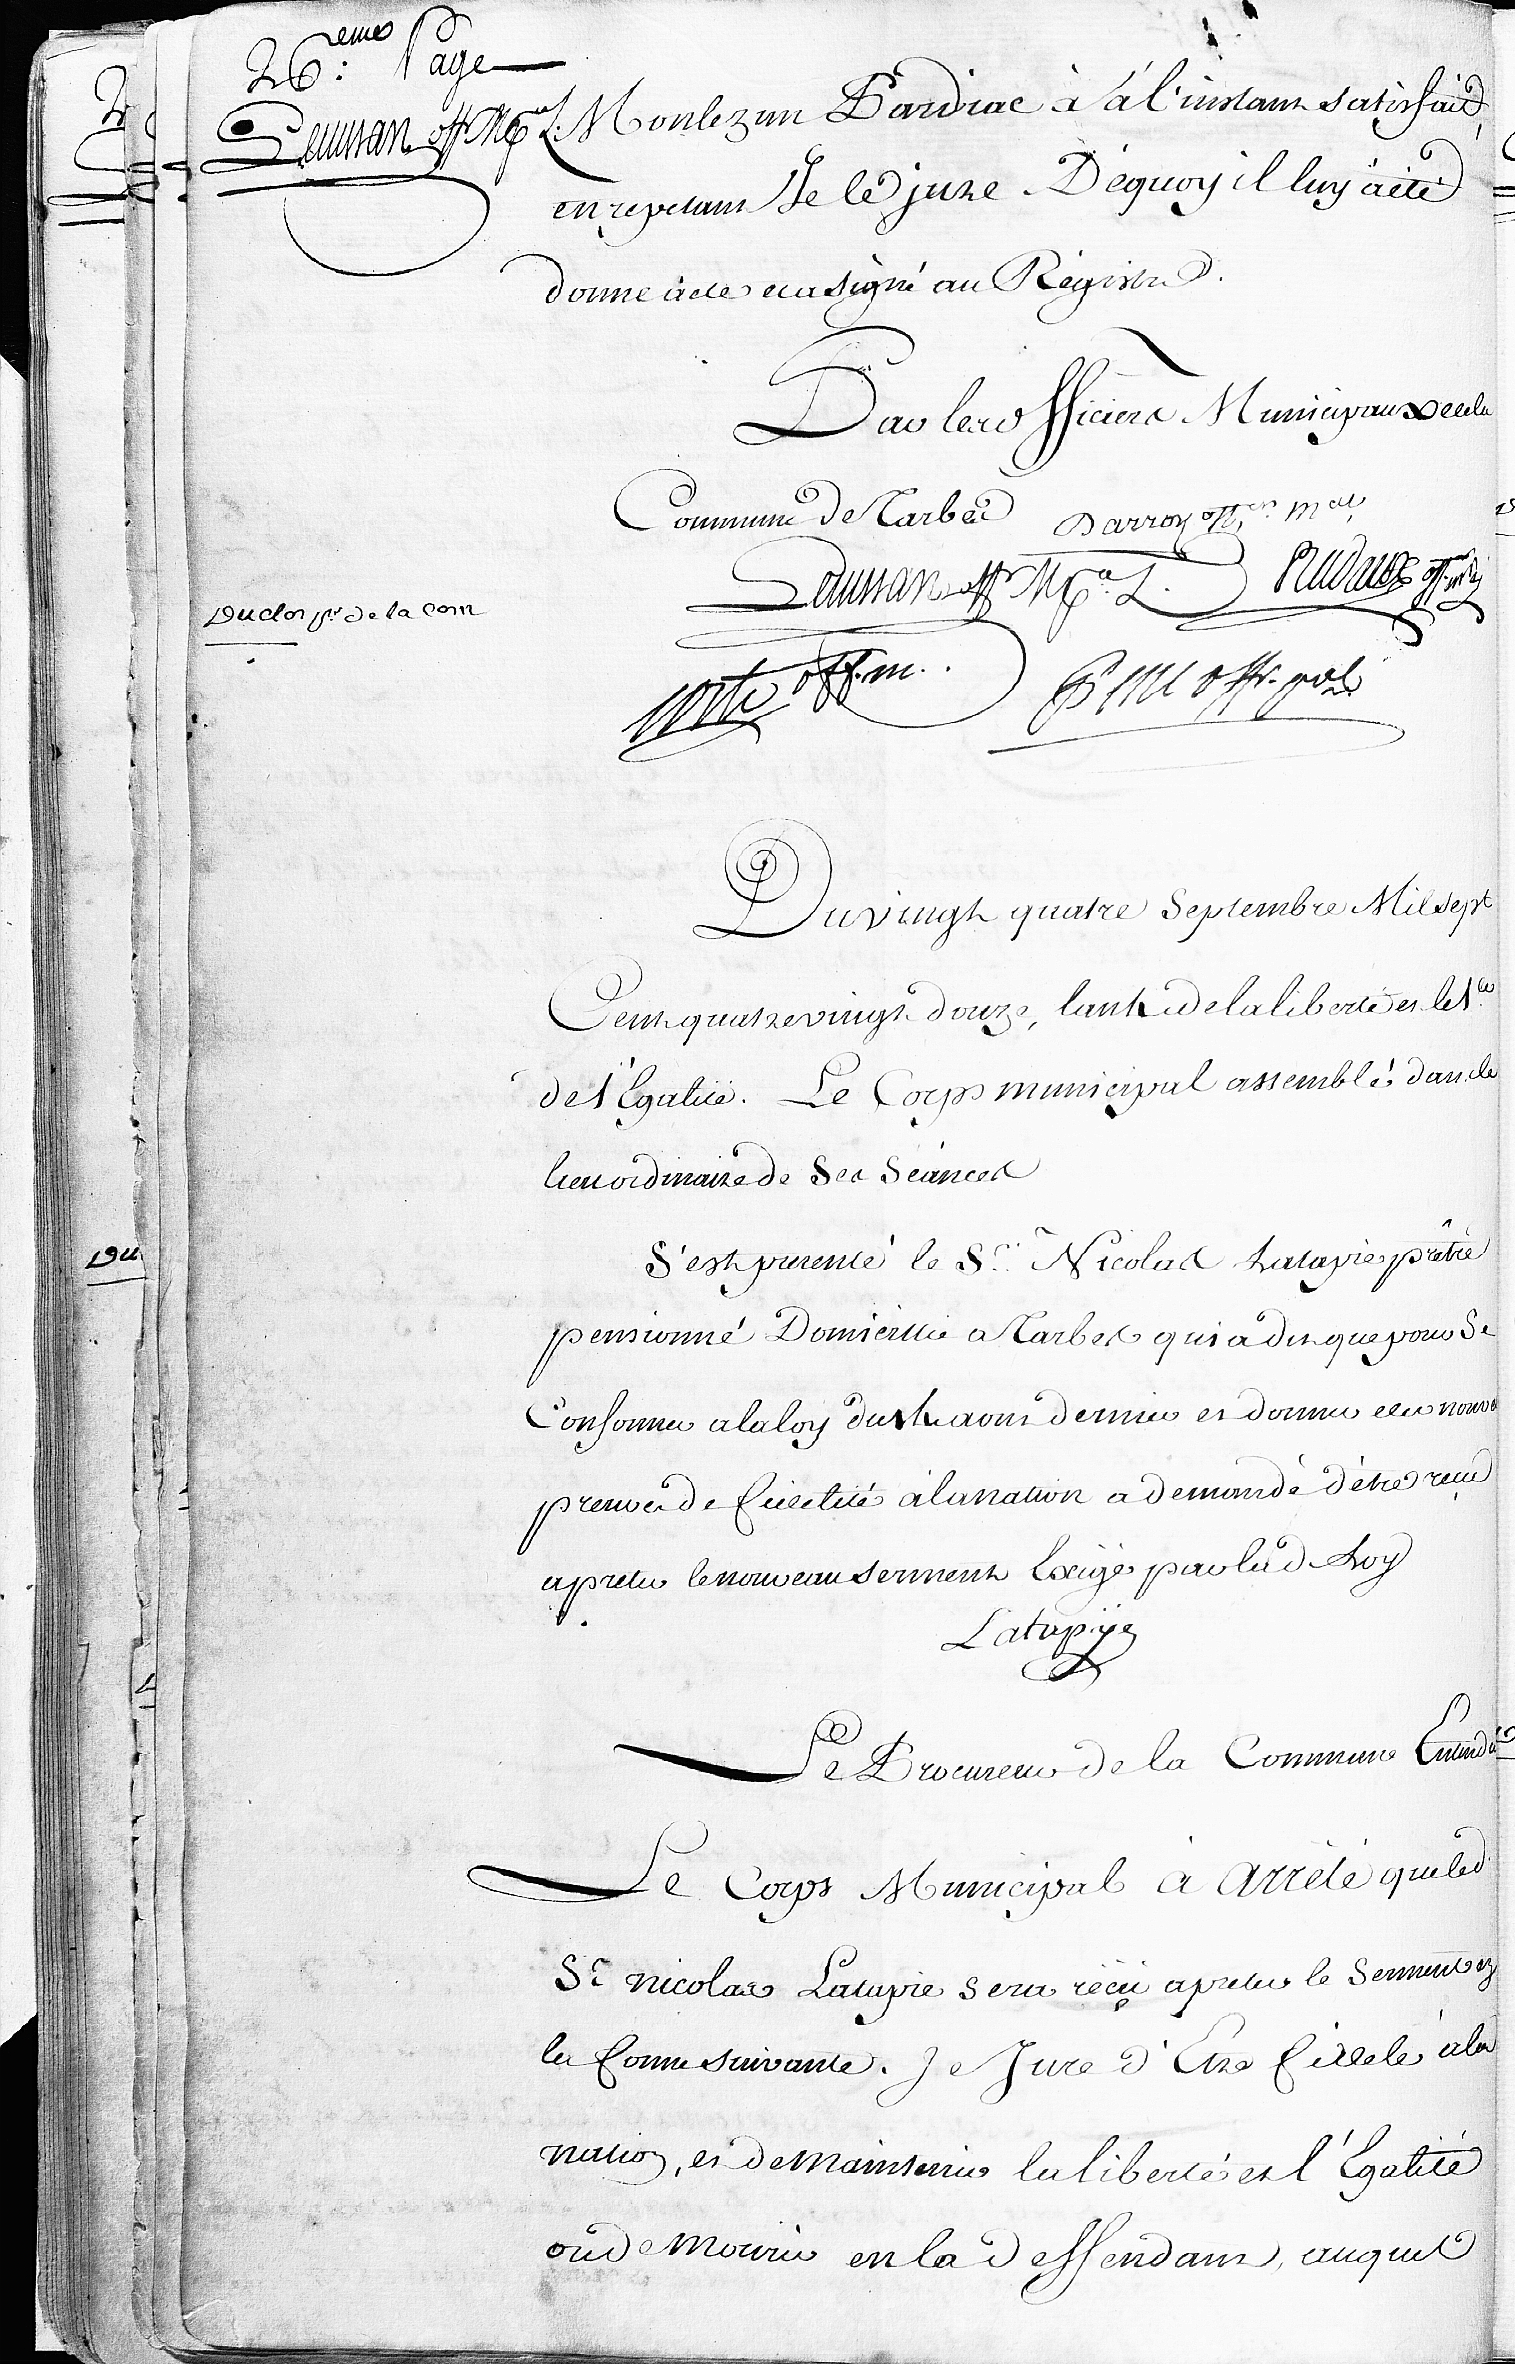 26.eme Page
Seussan off Mpal
Monlezun Pardiac à à l'instant satisfait
en repetant Je le jure. Dequoy il luy à été
donné acte et a signé au Régistre.
Par les officiers Municipaux de la
Commune de Tarbes Darroy offer mal
Seussan off Mpal
off. m.
off. mpal
Duclos pr de la com
Du vingt quatre Septembre Mil sept
Cent quatre vingt douze, l'an 4e de la liberté et le 1er
de l'Egalité. Le Corps municipal assemblé dans le
lieu ordinaire de Ses Séances
S'est presenté le Sr. Nicolas Latapie prêtre
pensionné Domicilié a Tarbes qui a dit que pour Se
Conformer a la loy du aout dernier et donner une nouve
preuve de fidelité à la nation a demandé d'être reçu
a preter le nouveau serment Exigé par lad. Loy
Latapie
Le Procureur de la Commune Entendu
Le Corps Municipal à Arrêté que led
Sr nicolas Latapie sera réçu a preter le Serment en
la forme suivante. Je Jure d'Etre fidele à la
nation, et de maintenir la liberté et l'Egalité
ou de mourir en la deffendant, auquel
Du